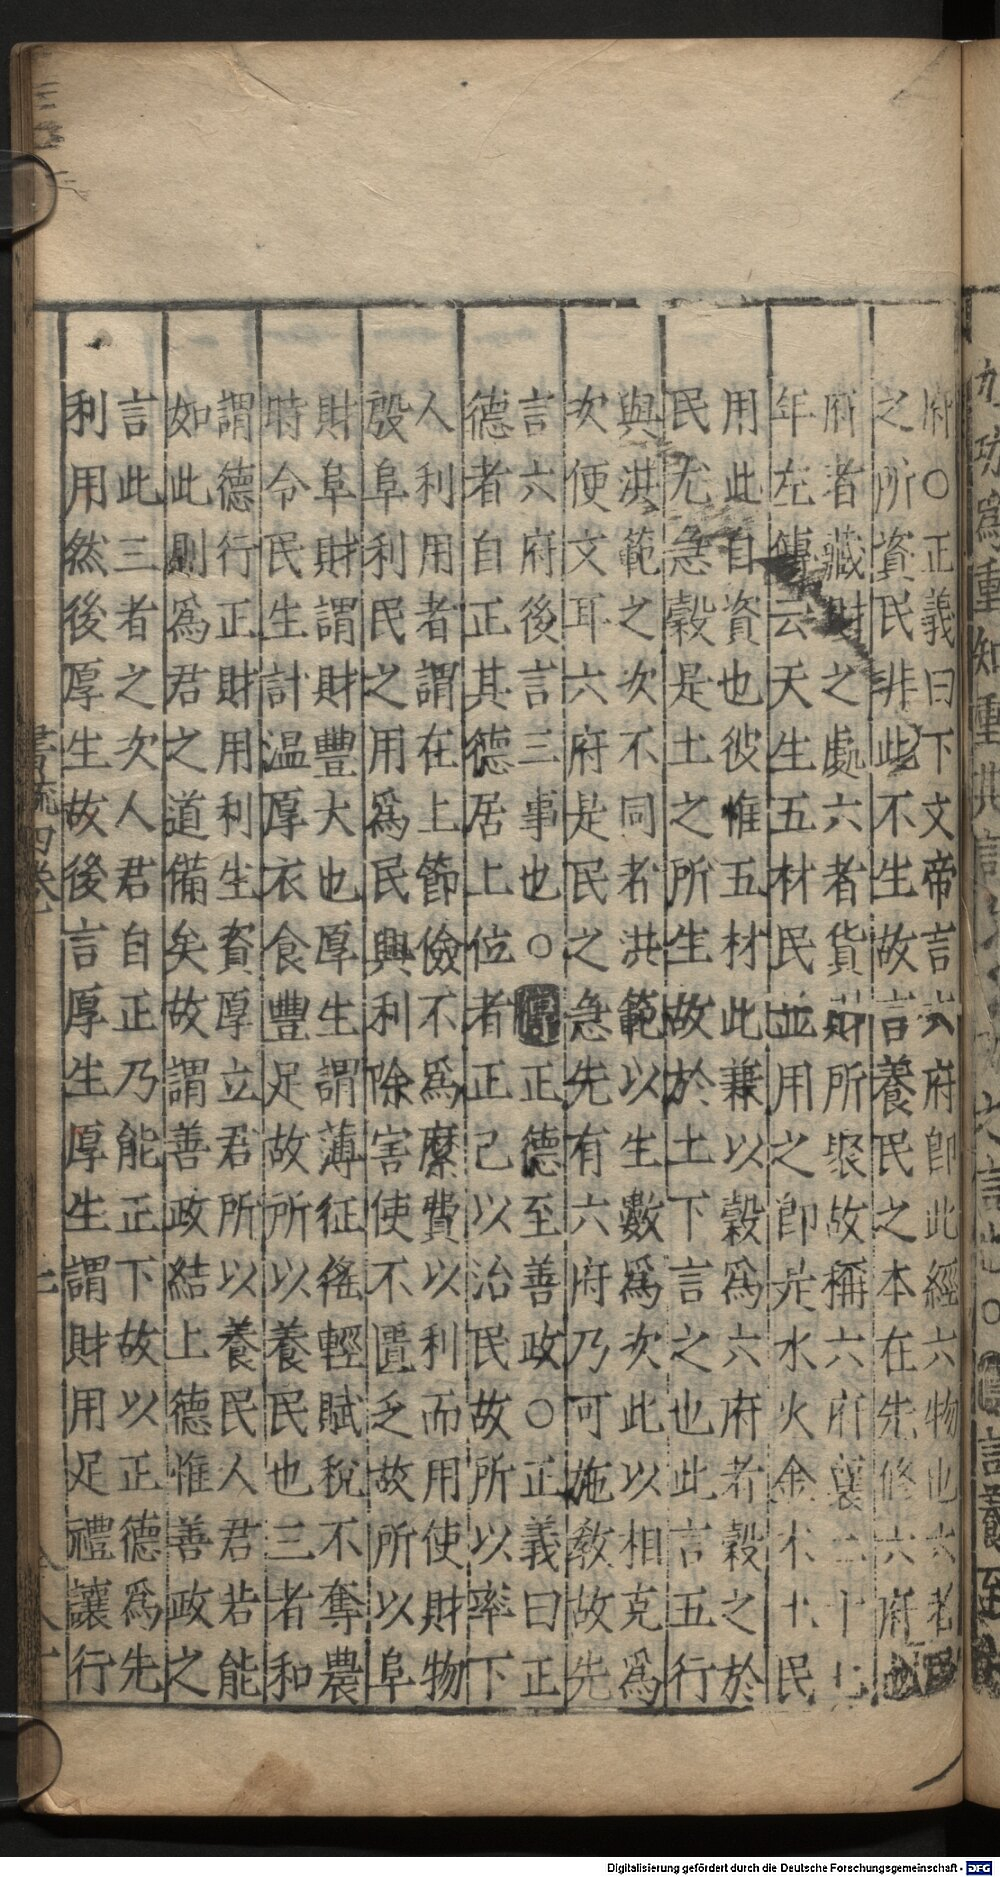 府○正義曰下文帝言六府即此經六物也六者民
之所資民非此不生故言養民之本在先修六府也
府者藏財之處六者貨財所聚故稱六府襄二十七
年左傳云天生五材民並用之即是水火金木土民
用此自資也彼惟五材此兼以穀爲六府者穀之於
民尤急穀是土之所生故於土下言之也此言五行
與洪範之次不同者洪範以生數爲次此以相克爲
次便文耳六府是民之急先有六府乃可施教故先
言六府後言三事也○傳正德至善政○正義曰正
德者自正其德居上位者正己以治民故所以率下
人利用者謂在上節儉不爲縻費以利而用使財物
殷阜利民之用爲民興利除害使不匱乏故所以阜
財阜財謂財豐大也厚生謂薄征徭輕賦稅不奪農
時令民生計温厚衣食豐足故所以養民也三者和
謂德行正財用利生資厚立君所以養民人君若能
如此則爲君之道備矣故謂善政結上德惟善政之
言此三者之次人君自正乃能正下故以正德爲先
利用然後厚生故後言厚生厚生謂財用足禮讓行
書疏四卷
Digitalisierung gefördert durch die Deutsche Forschungsgemeinschaft - DFG